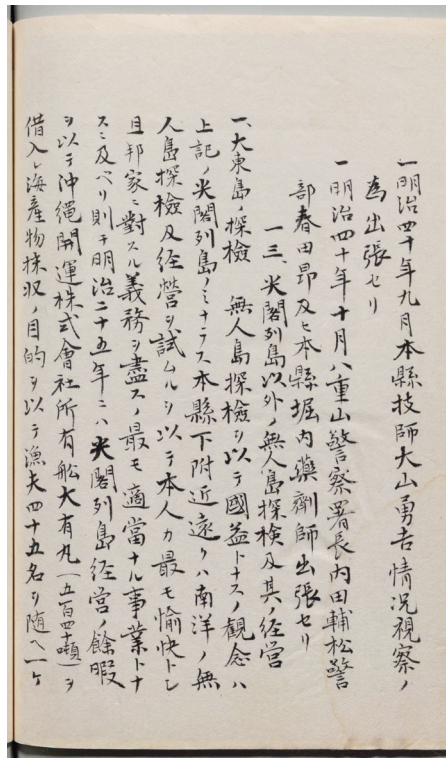 一明治四十年九月本縣技師大山勇吉情況視察ノ
為出張セリ
一明治四十年十月八重山警察署長内田輔松警
部春田昂及ヒ本縣堀内藥劑師出張セリ
一三、尖閣列島以外ノ無人島探検及其ノ経営
一、大東島ノ探檢 無人島探檢ヲ以テ國益トナスノ観念ハ
上記ノ尖閣列島ノミナラス本縣下附近遠クハ南洋ノ無
人島探檢及経営ヲ試ムルヲ以テ本人カ最モ愉快トシ
且邦家ニ對スル義務ヲ盡スノ最モ適當ナル事業トナ
スニ及ベリ則チ明治二十五年ニハ尖閣列島経営ノ餘暇
ヲ以テ沖縄開運株式會社所有船大有丸(五百四十噸)ヲ
借入レ海産物採収ノ目的ヲ以テ漁夫四十五名ヲ随ヘ一ケ